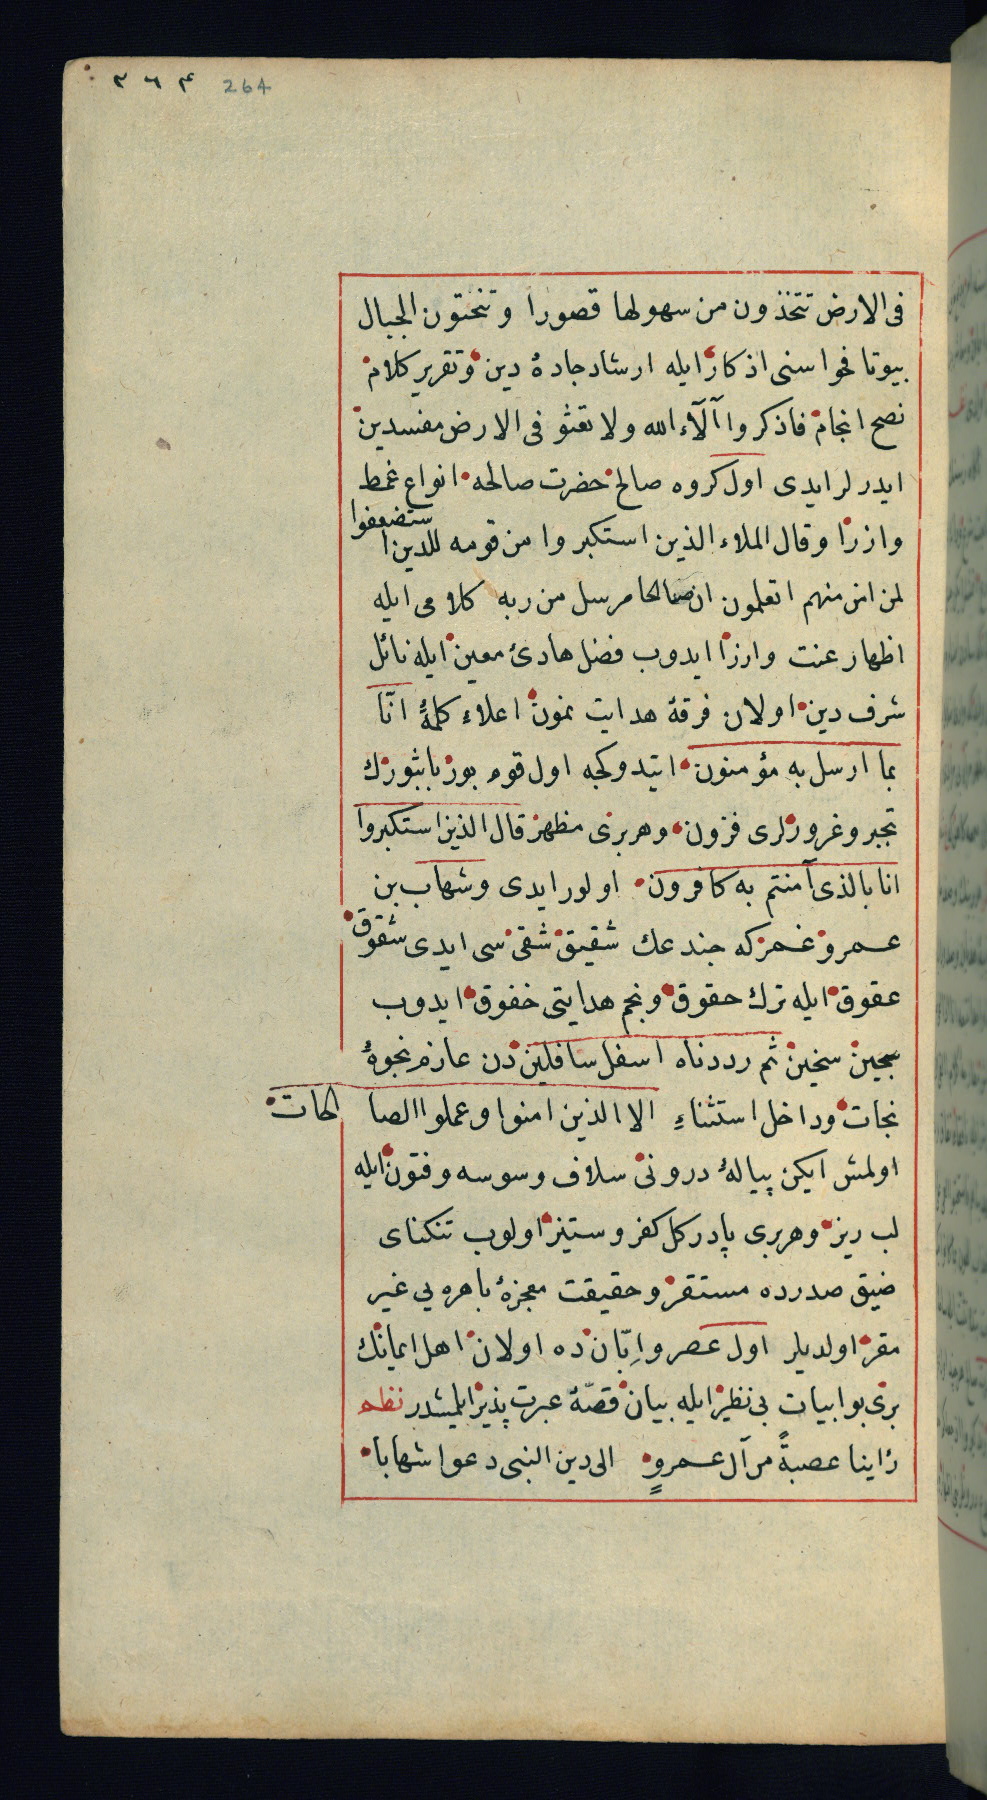 ٢٦۴ 264
فى الارض تتخذون من سهولها قصورا و تنحتون الجبال
بيوتا فحواسنى اذكار ايله ارشاد جادهٔ دين و تقرير كلام
نصح انجام فاذكروا آلآء الله ولا تعثو فى الارض مفسدين
ايدرلر ايدى اول كروه صالح حضرت صالحه انواع غمط
وازرا وقال الملاء الذين استكبروا من قومه للذين استضعفوا
لمن امن منهم اتعلمون ان صالحا مرسل من ربه كلامى ايله
اظهار عنت وارزا ايدوب فضل هادئ معين ايله نائل
شرف دين اولان فرقهٔ هدايت نمون اعلاء كلمهٔ انّا
بما ارسل به مؤمنون ايتدوكجه اول قوم بور بابثورك
تجبر وغرورلرى فزون وهر برى مظهر قال الذين استكبروا
انا بالذى آمنتم به كافرون اولور ايدى وشهاب بن
عمرو غمر كه جندعك شقيق شقى سى ايدى شقوق
عقوق ايله ترك حقوق و نجم هدايتى خفوق ايدوب
سجين سخين ثم رددناه اسفل سافلين دن عازم نجوهٔ
نجات و داخل استثناءِ الا الذين امنوا وعملوا الصالحات
اولمش ايكن پيالهٔ درونى سلاف وسوسه وفتون ايله
لب ريز وهر برى پادر كل كفر وستيز اولوب تنكناى
ضيق صدرده مستقر و حقيقت معجزهٔ باهره يى غير
مقر اولديلر اول عصر واِبّان ده اولان اهل ايمانك
برى بو ابيات بى نظير ايله بيان قصّهٔ عبرت پذير ايلمشدر نظم
رٔاينا عصبةً من آل عمروٍ الى دين النبى دعوا شهابا